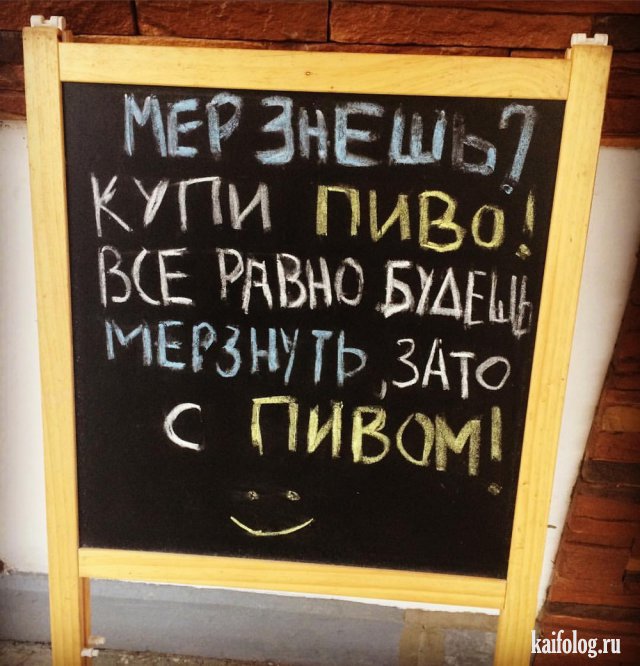 МЕРЗНЕШЬ?
КУПИ ПИВО!
ВСЕ РАВНО БУДЕШЬ
МЕРЗНУТЬ, ЗАТО
С ПИВОМ!
kaifolog.ru